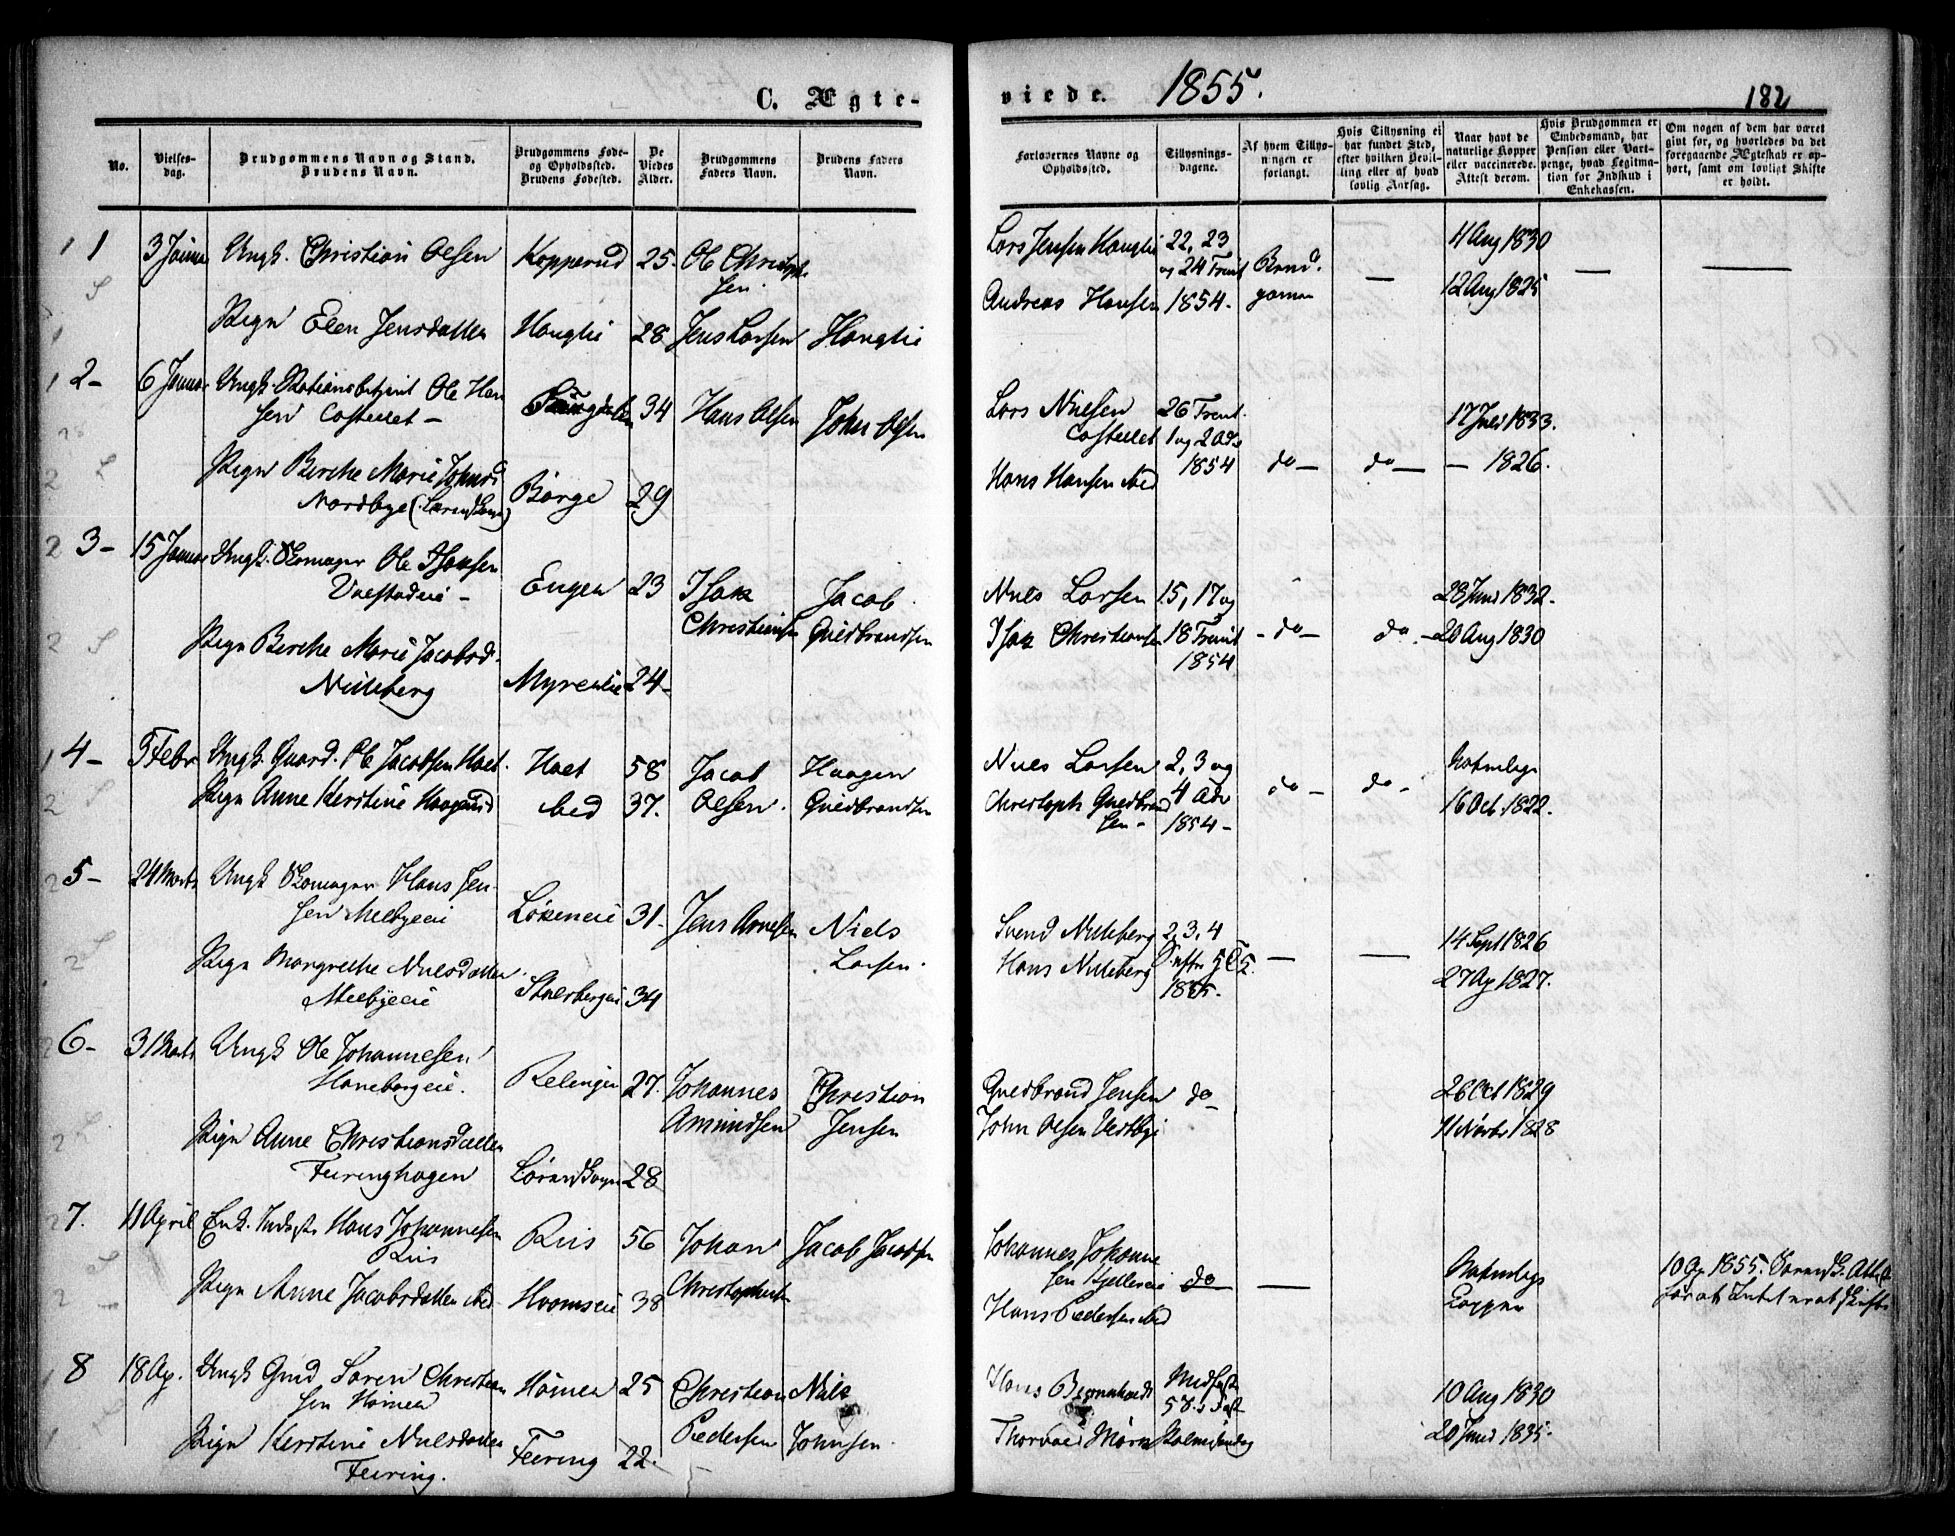 C. Ægte-
viede. 1855.
182
No.
Vielses-
dag.
Brudgommens Navn og Stand.
Brudens Navn.
Brudgommens Føde-
og Opholdssted.
Brudens Fødested.
De
Viedes
Alder.
Brudgommens
Faders Navn.
Brudens Faders
Navn.
Forlovernes Navne og
Opholdssted.
Tillysnings-
dagene.
Af hvem Tillys-
ningen er
forlangt.
Hvis Tillysning ei
har fundet Sted,
efter hvilken Bevil-
ling eller af hvad
lovlig Aarsag.
Naar havt de
naturlige Kopper
eller vaccinerede.
Attest derom.
Hvis Brudgommen er
Embedsmand, har
Pension eller Vart-
penge, hvad Legitima-
tion for Indskud i
Enkekassen.
Om nogen af dem har været
gift før, og hvorledes da det
foregaaende Ægteskab er op-
hørt, samt om lovligt Skifte
er holdt.
1 3 Januar Ungk. Christian Olsen Kopperud 25. Ole Christoph-
sen.
Pign Elen Jensdatter Hauglie 28 Jens Larsen Hauglie
Lars Jensen Hauglie 22, 23 4 Aug 1830
og 24 Trinit Brud-
Andreas Hansen 1854. gommen 12 Aug 1825
2- 6 Januar Ungk. Stationsbetjent Ole Han
sen Castellet - 34 Hans Olsen John Olsen
Pign Berthe Marie Johnsd
Nordbye Børge 29
Lars Nielsen 26 Trinit. 17 Juli 1833.
Castellet 1 og 2 Adv
Hans Hansen ibid 1854 do - do - - 1826.
3- 15 Januar Ungk. Skomager Ole Isaksen
Engen 23 Isak Jacob
Christiansen Guldbrandsen
Pign Berthe Marie Jacobsd.
Nilsberg Myrerlie 24-
Niels Larsen 15, 17 og 28 Juni 1832.
Isak Christiansen 18 Trinit - do - do - 20 Aug 1830
1854
4- 5 Febr Ungk. Guard. Ole Jacobsen Haet. Haet 58 Jacob Haagen
Pign Anne Kirstine Haagensd ibid 37. Olsen. Guldbrandsen
Niels Larsen 2, 3 og
Christoph Guldbrand 4 Adv do - do - 16 Oct. 1822.
sen - 1854 -
5- 24 Marts Ungk Skomager Hans Jen-
sen Melbyeeie Løkeneie 31. Jens Arnesen Niels
Larsen.
Pign Margrethe Nielsdatter
Melbyeeie 34
Svend Nilsberg 2, 3, 4 14 Sept 1826
Hans Nilsberg - - 27 Ap 1827.
1855.
6- 31 Marts Ungk Ole Johannesen
Haneborgeie. Relingen 27. Johannes Christian
Amundsen Jensen
Pign Anne Christiansdatter
Feiringhagen 28
Guldbrand Jensen do 26 Oct 1829
John Olsen Vestbye 11 Novbr 1828
7. 11 April Enk. Inderst Hans Johannesen
Riis Riis 56 Johan Jacob Jacobsen
Christophersen
Pign Anne Jacobsdatter ibid. 38
Johannes Johanne
sen do -
Hans Pedersen ibid Kopper
10 Ap 1855.
8 18 Ap. Ungk Gmd Søren Christian
sen Hømen Hømen 25 Christian Niels
Pedersen Johnsen.
Pign Kirstine Nielsdatter
Feiring. Feiring 22.
Hans Midfaste 10 Aug 1830
5 S. i Faste
Thorvald Mørk Palmesøndag 20 Juni 1835.